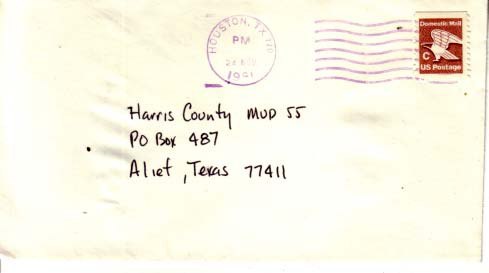 HOUSTON, TX
PM
1981
Domestic Mail
C
US Postage
Harris County MUD 55
PO Box 487
Alief, Texas 77411